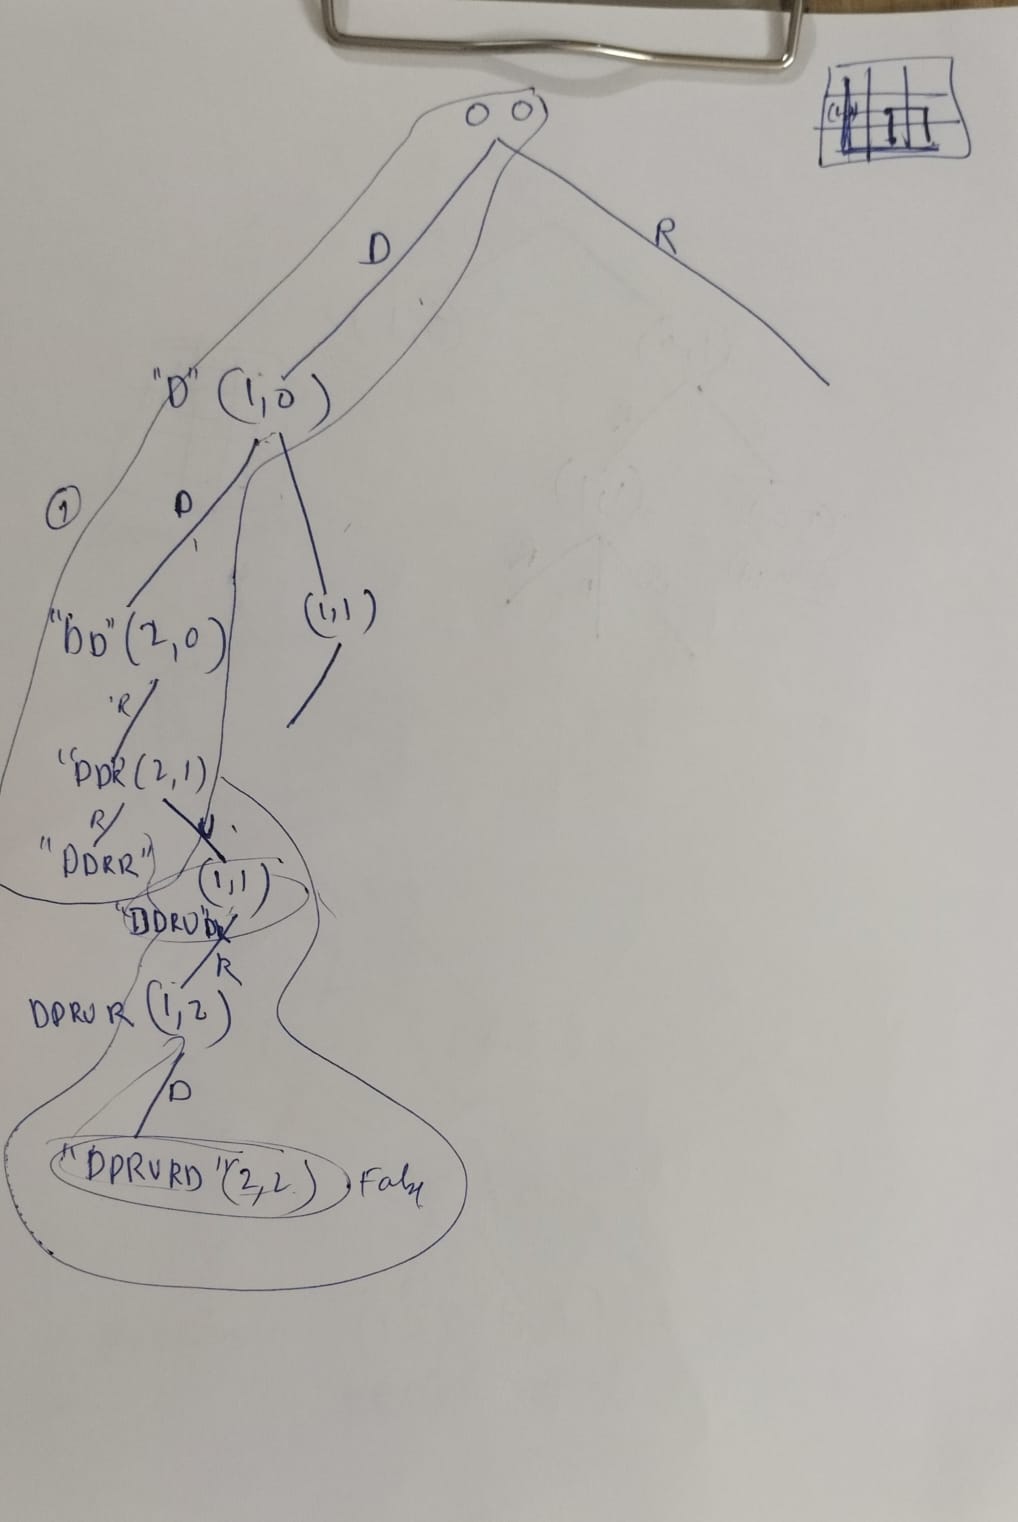 0 0
D
R
"D" (1,0)
1
D
"DD" (2,0)
(1,1)
R
"DDR (2,1)
R
U
"DDRR"
(1,1)
"DDRU"
R
DDRUR (1,2)
D
"DDRURD" (2,2) False